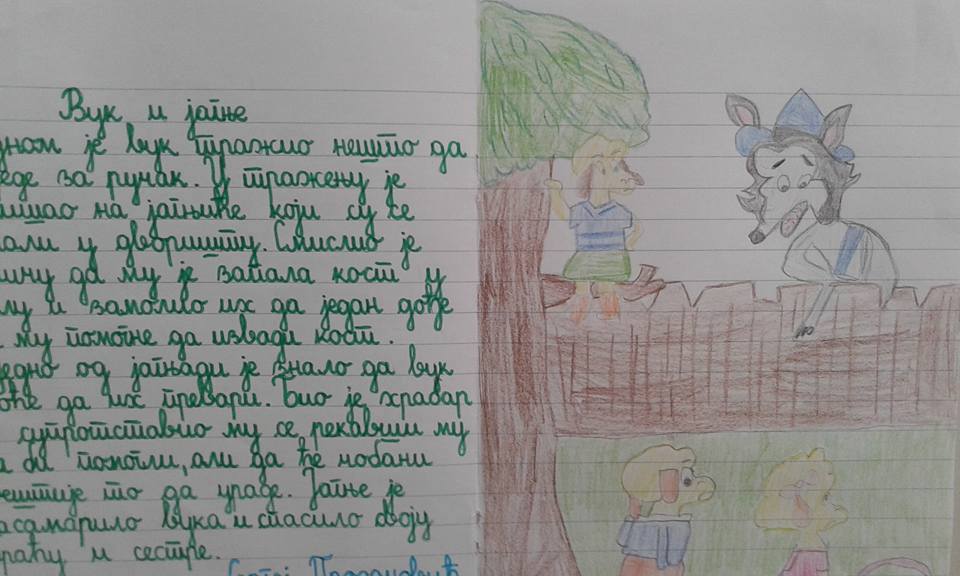 Вук и јагње
дном је вук тражио нешто да
једе за ручак. У тражењу је
ишао на јагњиће који су се
али у дворишту. Смислио је
ичу да му је запала кост у
лу и замолио их да један дође
му помогне да извади кост.
једно од јагњади је знало да вук
оће да их превари. Био је храбар
супротставио му се, рекавши му
а би помогли, али да ће чобани
ештије то да ураде. Јагње је
асамарило вука и спасило своју
раћу и сестре.